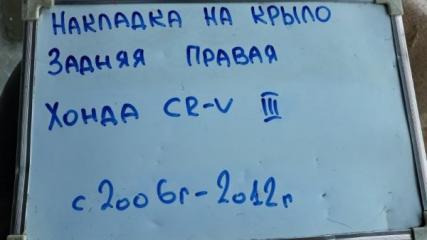 НАКЛАДКА НА КРЫЛО
ЗАДНЯЯ ПРАВАЯ
ХОНДА CR-V III
с 2006г-2012г